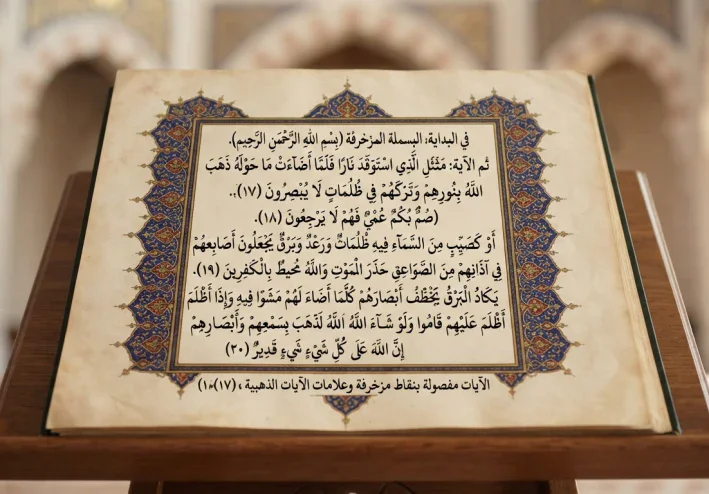 في البداية: البسملة المزخرفة (بِسْمِ اللهِ الرَّحْمَنِ الرَّحِيمِ).
ثم الآية: مَثَئَلِ الَّذِي اسْتَوْقَدَ نَارًا فَلَمَّا أَضَاءَتْ مَا حَوْلَهُ ذَهَبَ
اللَّهُ بِنُورِهِمْ وَتَرَكَهُمْ فِي ظُلُمَاتٍ لَا يُبْصِرُونَ (١٧)..
(صُمٌّ بُكْمٌ عُمْيٌ فَهُمْ لَا يَرْجِعُونَ (١٨).
أَوْ كَصَيِّبٍ مِنَ السَّمَآءِ فِيهِ ظُلُمَاتٌ وَرَعْدٌ وَبَرْقٌ يَجْعَلُونَ أَصَابِعَهُمْ
فِي آذَانِهِمْ مِنَ الصَّوَاعِقِ حَذَرَ الْمَوْتِ وَاللَّهُ مُحِيطٌ بِالْكَفِرِينَ (١٩).
يَكَادُ الْبَرْقُ يَخْطَفُ أَبْصَارَهُمْ كُلَّمَا أَضَاءَ لَهُمْ مَشَوْا فِيهِ وَإِذَا أَظْلَمَ
أَظْلَمَ عَلَيْهِمْ قَامُوا وَلَوْ شَآءَ اللَّهُ اللَّهُ لَذَهَبَ بِسَمْعِهِمْ وَأَبْصَارِهِمْ
إِنَّ اللَّهَ عَلَى كُلِّ شَيْءٍ شَيْءٍ قَدِيرٌ (٢٠)
الآيات مفصولة بنقاط مزخرفة وعلامات الآيات الذهبية ،(١٧)